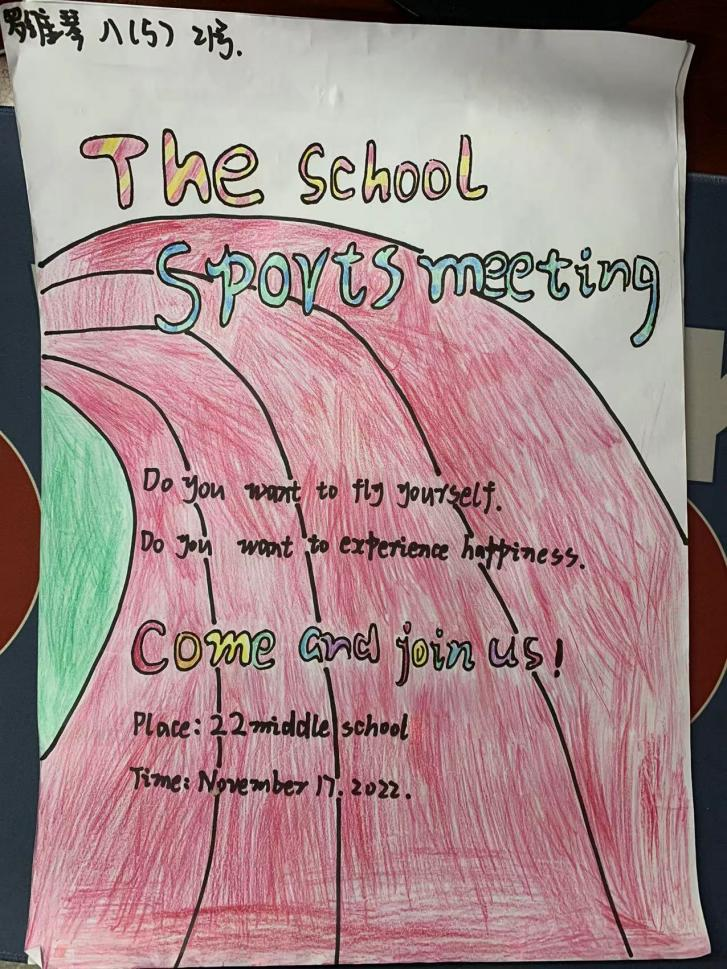 罗雅琴 八(5) 21号.
The school
Sports meeting
Do you want to fly yourself.
Do you want to experience happiness.
Come and join us!
Place: 22 middle school
Time: November 17. 2022.